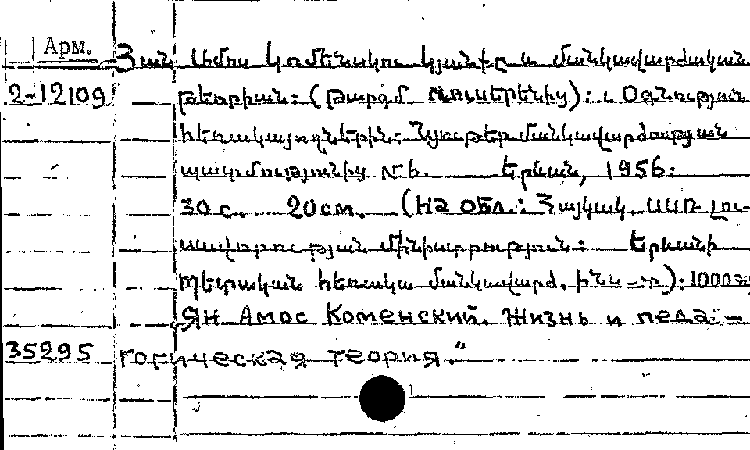 Арм. Յան Ամոս Կոմենսկու կյանքը և մանկավարժական
2-12109 թեորիան: (Թարգմ ռուսերենից): Օգնություն
հեռակայողներին: Նյութեր մանկավարժության
պատմությունից № 6. Երևան, 1956:
30 с. 20 см. (На обл.: Հայկակ. ՍՍՌ լու-
սավորության մինիստրություն: Երևանի
պետական հեռակա մանկավարժ. ինս-տ): 1000
Ян Амос Коменский. Жизнь и педа-
35295 гогическая теория."